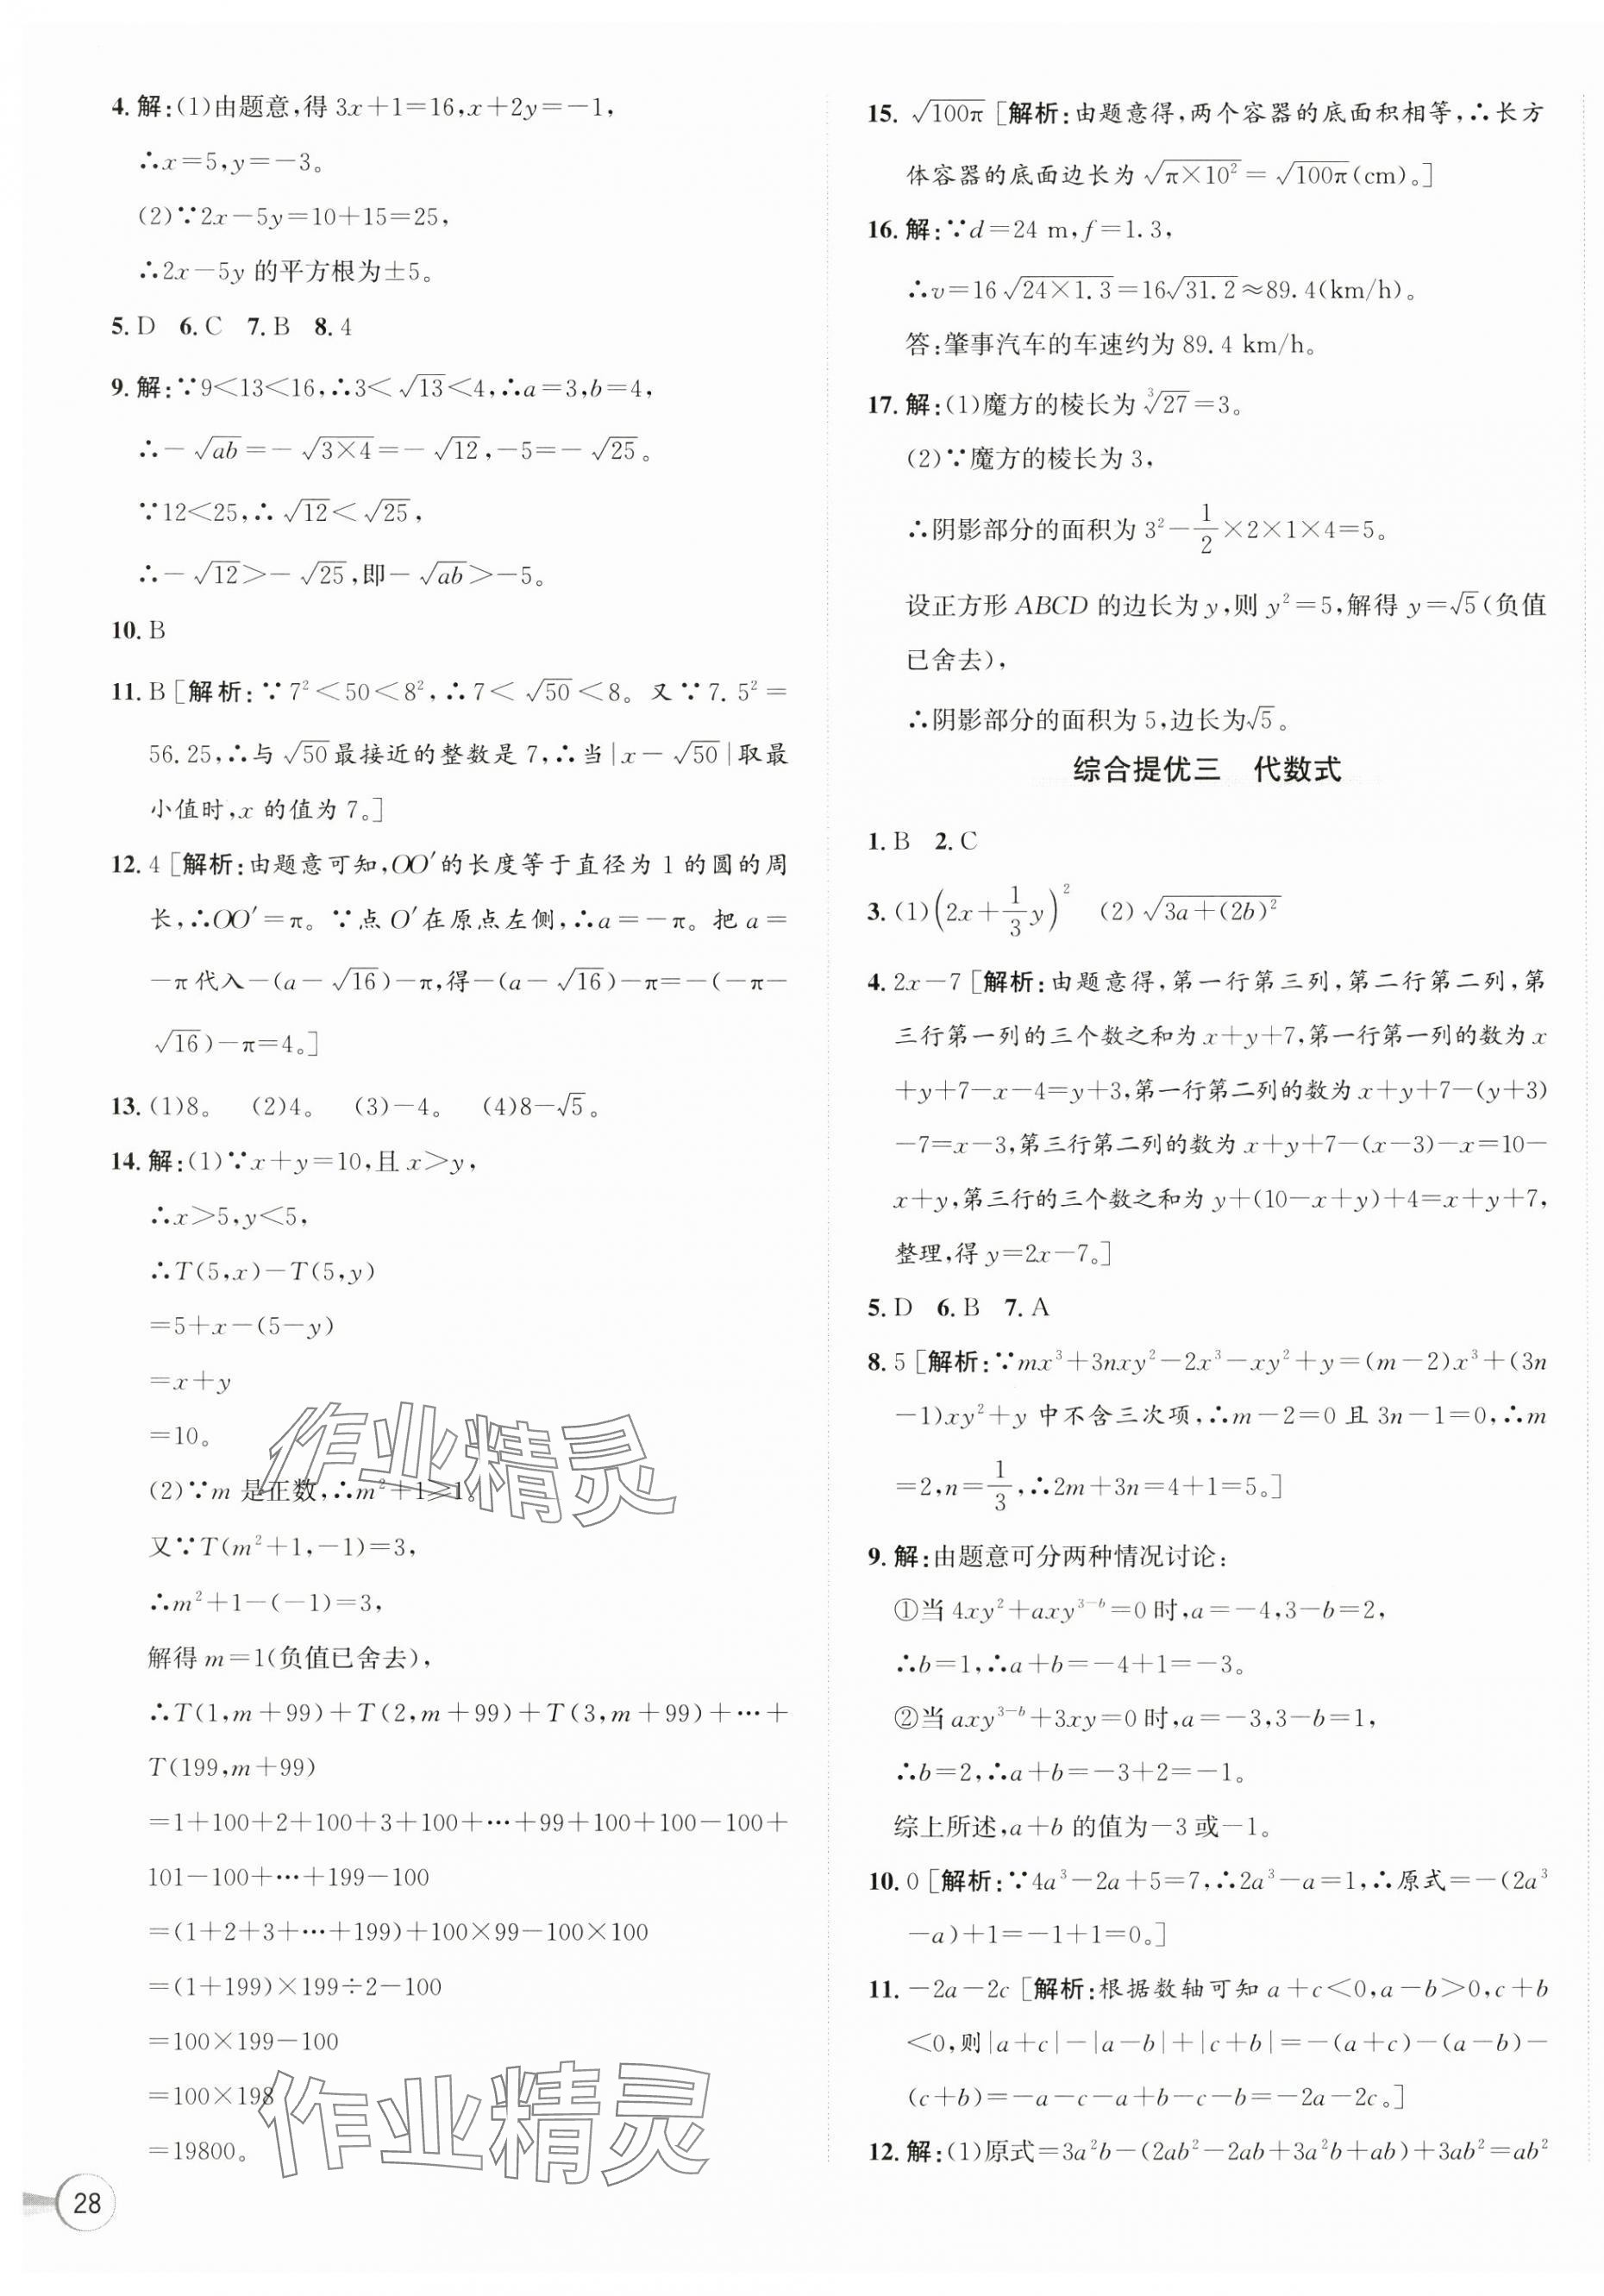 4. 解:(1)由题意,得 3x+1=16,x+2y=-1,
∴x=5,y=-3。
(2)∵2x-5y=10+15=25,
∴2x-5y 的平方根为±5。
5. D 6. C 7. B 8. 4
9. 解:∵9<13<16,∴3<√13<4,∴a=3,b=4,
∴-√ab=-√3×4=-√12,-5=-√25。
∵12<25,∴√12<√25,
∴-√12>-√25,即-√ab>-5。
10. B
11. B [解析:∵7²<50<8²,∴7<√50<8。又∵7.5²=
56.25,∴与√50最接近的整数是 7,∴当|x-√50|取最
小值时,x 的值为 7。]
12. 4 [解析:由题意可知,OO′的长度等于直径为 1 的圆的周
长,∴OO′=π。∵点 O′在原点左侧,∴a=-π。把 a=
-π代入-(a-√16)-π,得-(a-√16)-π=-(-π-
√16)-π=4。]
13. (1)8。 (2)4。 (3)-4。 (4)8-√5。
14. 解:(1)∵x+y=10,且 x>y,
∴x>5,y<5,
∴T(5,x)-T(5,y)
=5+x-(5-y)
=x+y
=10。
(2)∵m 是正数,∴m²+1≥1。
又∵T(m²+1,-1)=3,
∴m²+1-(-1)=3,
解得 m=1(负值已舍去),
∴T(1,m+99)+T(2,m+99)+T(3,m+99)+⋯+
T(199,m+99)
=1+100+2+100+3+100+⋯+99+100+100-100+
101-100+⋯+199-100
=(1+2+3+⋯+199)+100×99-100×100
=(1+199)×199÷2-100
=100×199-100
=100×198
=19800。
作业精灵
作业精灵
28
15. √100π [解析:由题意得,两个容器的底面积相等,∴长方
体容器的底面边长为 √π×10²=√100π(cm)。]
16. 解:∵d=24 m,f=1.3,
∴v=16√24×1.3=16√31.2≈89.4(km/h)。
答:肇事汽车的车速约为 89.4 km/h。
17. 解:(1)魔方的棱长为∛27=3。
(2)∵魔方的棱长为 3,
∴阴影部分的面积为 3²-1/2×2×1×4=5。
设正方形 ABCD 的边长为 y,则 y²=5,解得 y=√5(负值
已舍去),
∴阴影部分的面积为 5,边长为√5。
综合提优三 代数式
1. B 2. C
3. (1)(2x+1/3y)² (2)√3a+(2b)²
4. 2x-7 [解析:由题意得,第一行第三列,第二行第二列,第
三行第一列的三个数之和为 x+y+7,第一行第一列的数为 x
+y+7-x-4=y+3,第一行第二列的数为 x+y+7-(y+3)
-7=x-3,第三行第二列的数为 x+y+7-(x-3)-x=10-
x+y,第三行的三个数之和为 y+(10-x+y)+4=x+y+7,
整理,得 y=2x-7。]
5. D 6. B 7. A
8. 5 [解析:∵mx³+3nxy²-2x³-xy²+y=(m-2)x³+(3n
-1)xy²+y 中不含三次项,∴m-2=0 且 3n-1=0,∴m
=2,n=1/3,∴2m+3n=4+1=5。]
9. 解:由题意可分两种情况讨论:
①当 4xy²+axy³⁻ᵇ=0 时,a=-4,3-b=2,
∴b=1,∴a+b=-4+1=-3。
②当 axy³⁻ᵇ+3xy=0 时,a=-3,3-b=1,
∴b=2,∴a+b=-3+2=-1。
综上所述,a+b 的值为-3 或-1。
10. 0 [解析:∵4a³-2a+5=7,∴2a³-a=1,∴原式=-(2a³
-a)+1=-1+1=0。]
11. -2a-2c [解析:根据数轴可知 a+c<0,a-b>0,c+b
<0,则|a+c|-|a-b|+|c+b|=-(a+c)-(a-b)-
(c+b)=-a-c-a+b-c-b=-2a-2c。]
12. 解:(1)原式=3a²b-(2ab²-2ab+3a²b+ab)+3ab²=ab²